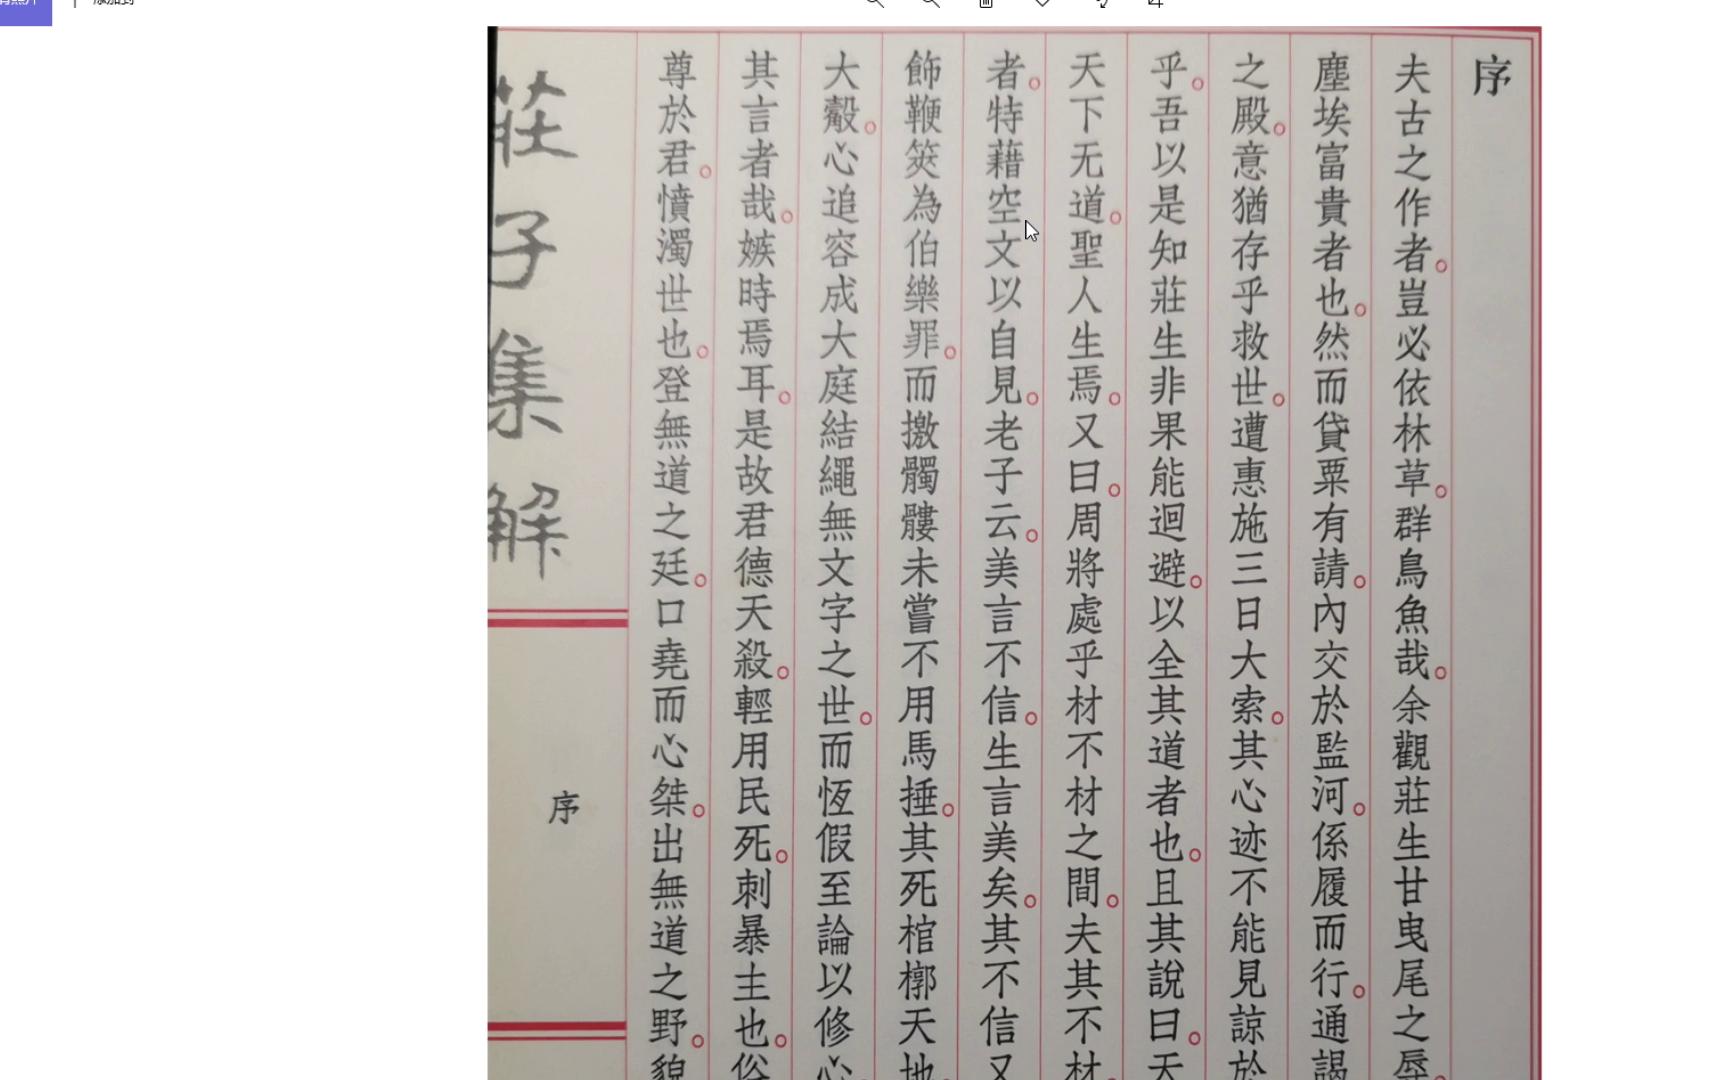 序
夫古之作者。豈必依林草。群鳥魚哉。余觀莊生甘曳尾之辱。
塵埃富貴者也。然而貸粟有請。內交於監河。係履而行。通謁
之殿。意猶存乎救世。遭惠施三日大索。其心迹不能見諒於
乎。吾以是知莊生非果能迴避。以全其道者也。且其說曰。天
天下无道。聖人生焉。又曰。周將處乎材不材之間。夫其不材
者。特藉空文以自見。老子云。美言不信。生言美矣。其不信又
飾鞭筴為伯樂罪。而撽髑髏未嘗不用馬捶。其死棺槨天地
大觳。心追容成大庭結繩無文字之世。而恆假至論以修心
其言者哉。嫉時焉耳。是故君德天殺。輕用民死。刺暴主也。俗
尊於君。憤濁世也。登無道之廷。口堯而心桀。出無道之野。貌
莊子集解
序